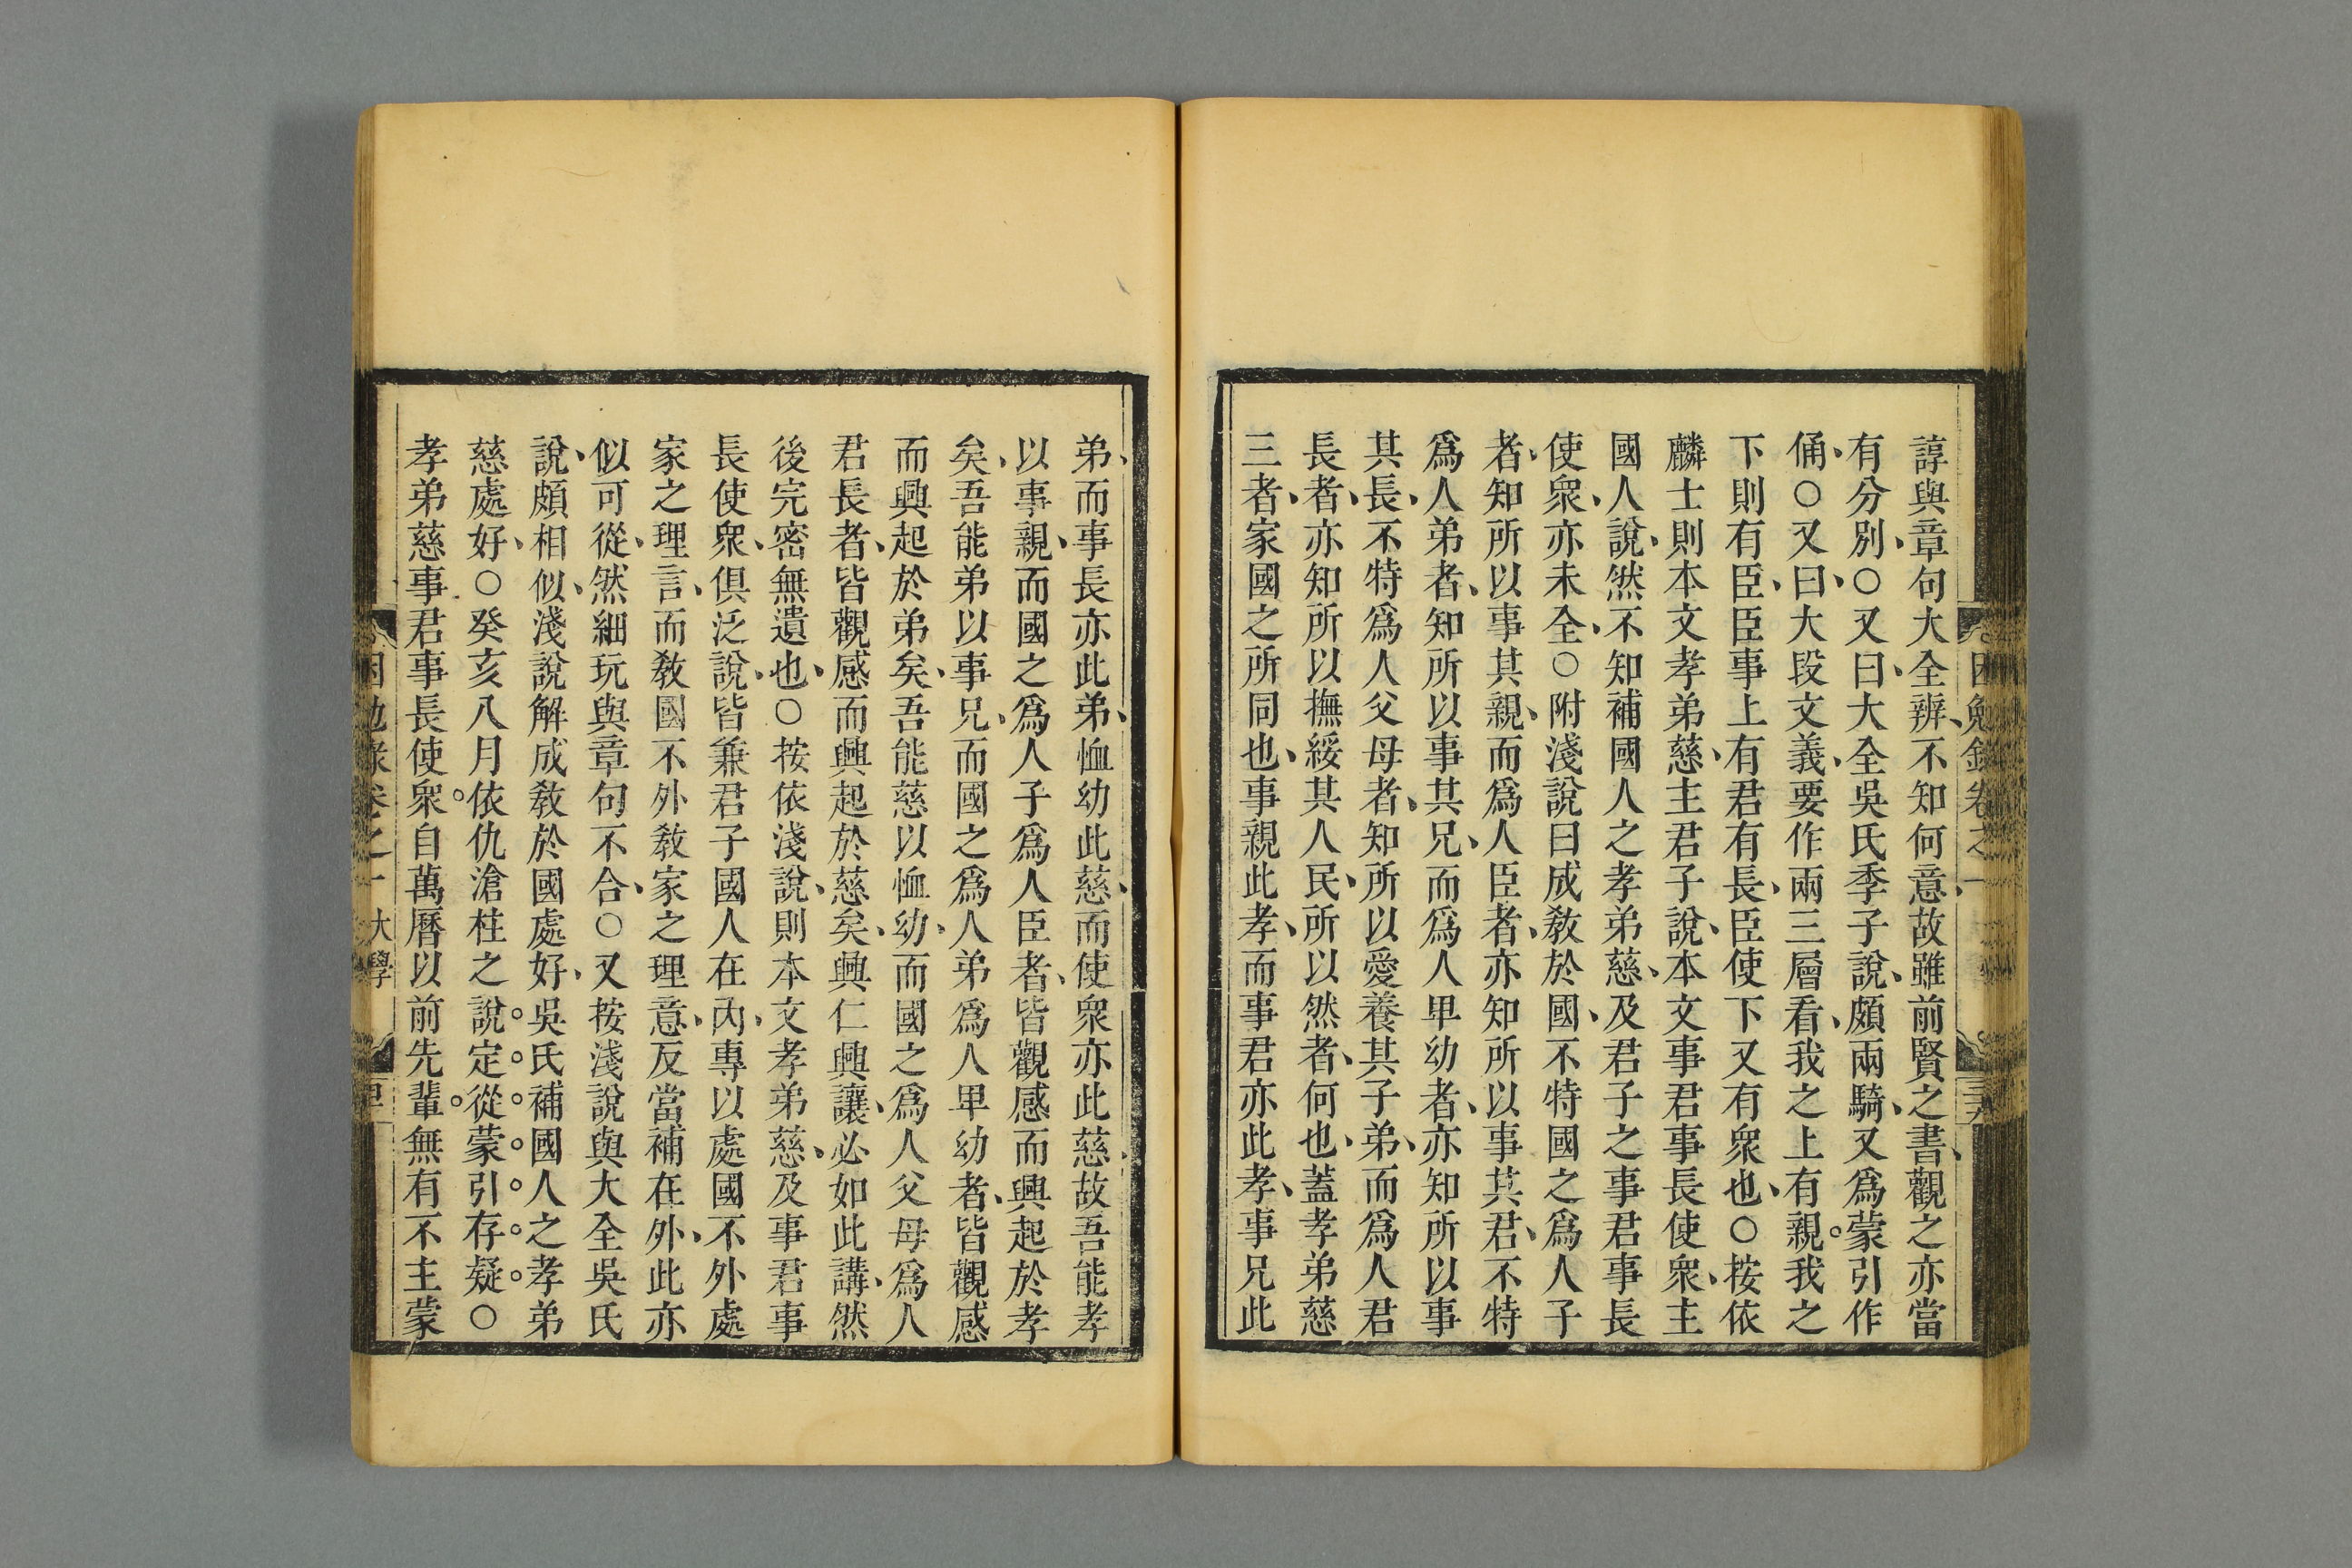 諄與章句大全辨、不知何意、故雖前賢之書、觀之亦當
有分別、○又曰、大全吳氏季子說、頗兩騎、又爲蒙引作
俑、○又曰、大段文義、要作兩三層看、我之上有親。我之
下則有臣、臣事上有君有長、臣使下又有衆也、○按依
麟士則本文孝弟慈、主君子說、本文事君事長使衆、主
國人說、然不知補國人之孝弟慈、及君子之事君事長
使衆、亦未全、○附淺說曰成教於國、不特國之爲人子
者、知所以事其親、而爲人臣者、亦知所以事其君、不特
爲人弟者、知所以事其兄、而爲人卑幼者、亦知所以事
其長、不特爲人父母者、知所以愛養其子弟、而爲人君
長者、亦知所以撫綏其人民、所以然者、何也、蓋孝弟慈
三者、家國之所同也、事親此孝、而事君亦此孝、事兄此
弟、而事長亦此弟、恤幼此慈、而使衆亦此慈、故吾能孝
以事親、而國之爲人子爲人臣者、皆觀感而興起於孝
矣、吾能弟以事兄、而國之爲人弟爲人卑幼者、皆觀感
而興起於弟矣、吾能慈以恤幼、而國之爲人父母爲人
君長者、皆觀感而興起於慈矣、興仁興讓、必如此講、然
後完密無遺也、○按依淺說、則本文孝弟慈、及事君事
長使衆、俱泛說、皆兼君子國人在內、專以處國不外處
家之理言、而教國不外教家之理意、反當補在外、此亦
似可從、然細玩與章句不合、○又按淺說與大全吳氏
說、頗相似、淺說解成教於國處好、吳氏補國人之孝弟
慈處好、○癸亥八月依仇滄柱之說。定。從。蒙。引。存。疑。○
孝弟慈事君事長使衆。自萬曆以前先輩。無有不主蒙
困勉錄卷之一
三九
困勉錄卷之一 大學